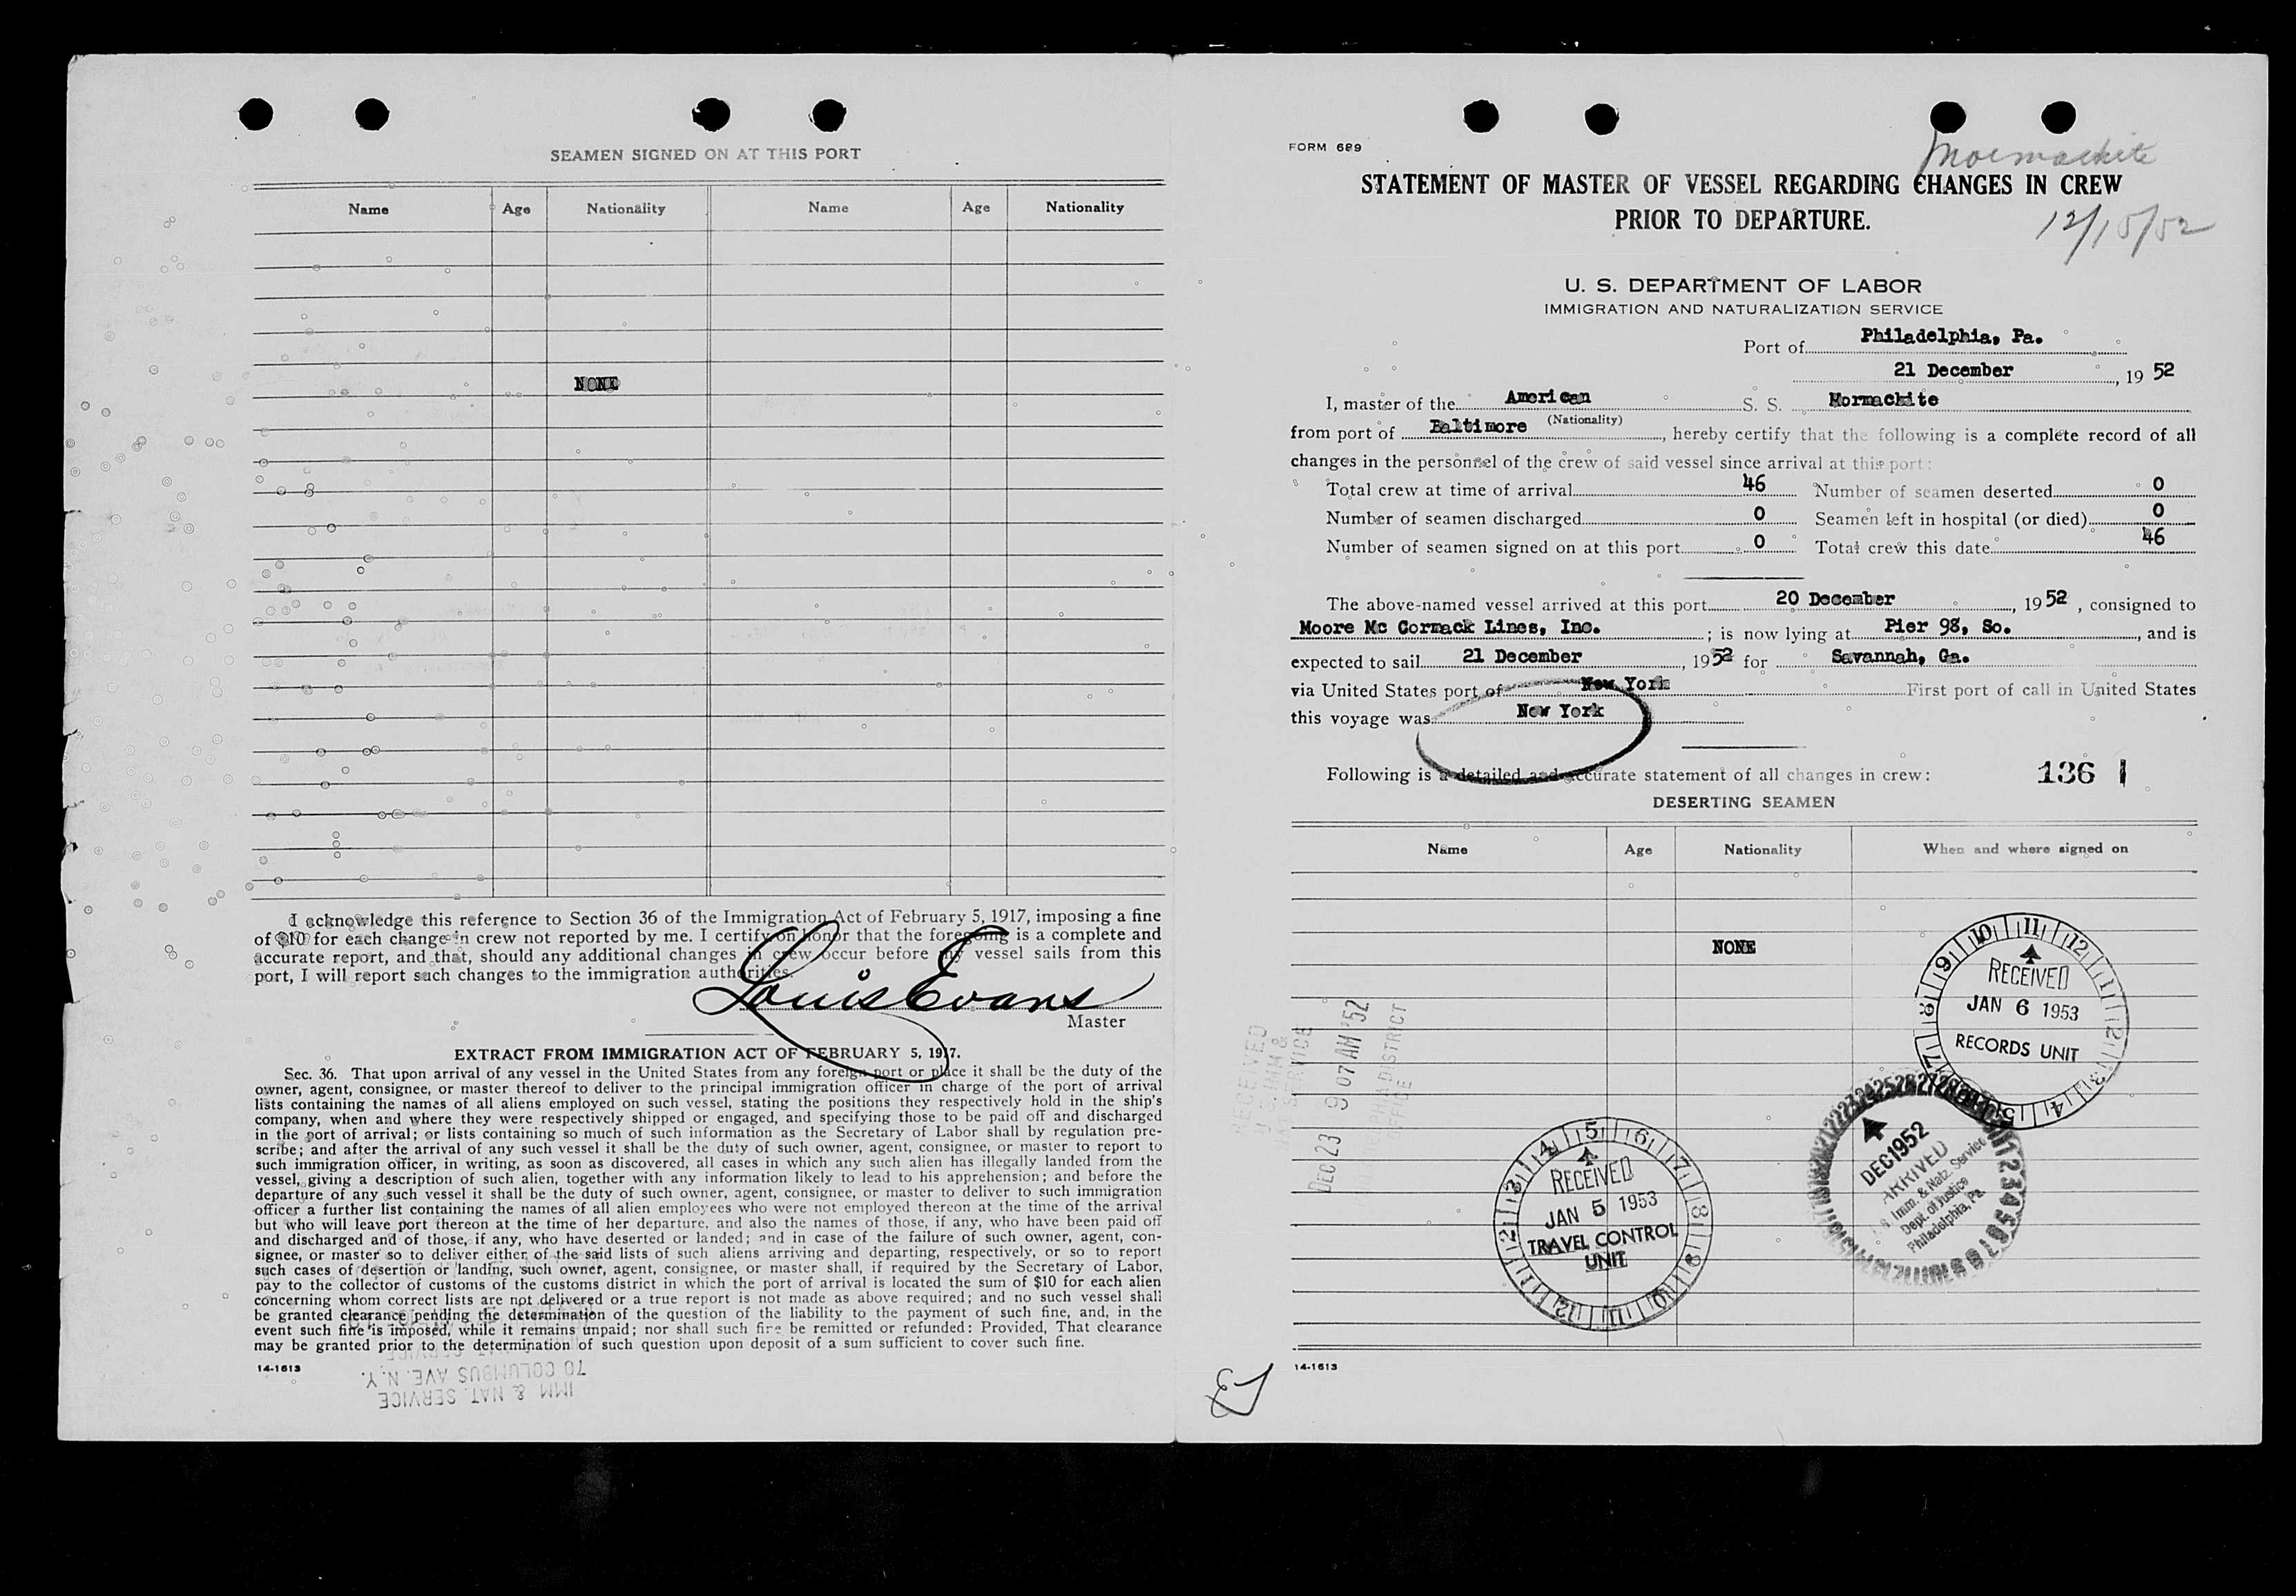 SEAMEN SIGNED ON AT THIS PORT
Name Age Nationality Name Age Nationality
NONE
I acknowledge this reference to Section 36 of the Immigration Act of February 5, 1917, imposing a fine
of $10 for each change in crew not reported by me. I certify on honor that the foregoing is a complete and
accurate report, and that, should any additional changes in crew occur before my vessel sails from this
port, I will report such changes to the immigration authorities.
Louis Evans
Master
EXTRACT FROM IMMIGRATION ACT OF FEBRUARY 5, 1917.
Sec. 36. That upon arrival of any vessel in the United States from any foreign port or place it shall be the duty of the
owner, agent, consignee, or master thereof to deliver to the principal immigration officer in charge of the port of arrival
lists containing the names of all aliens employed on such vessel, stating the positions they respectively hold in the ship's
company, when and where they were respectively shipped or engaged, and specifying those to be paid off and discharged
in the port of arrival; or lists containing so much of such information as the Secretary of Labor shall by regulation pre-
scribe; and after the arrival of any such vessel it shall be the duty of such owner, agent, consignee, or master to report to
such immigration officer, in writing, as soon as discovered, all cases in which any such alien has illegally landed from the
vessel, giving a description of such alien, together with any information likely to lead to his apprehension; and before the
departure of any such vessel it shall be the duty of such owner, agent, consignee, or master to deliver to such immigration
officer a further list containing the names of all alien employees who were not employed thereon at the time of the arrival
but who will leave port thereon at the time of her departure, and also the names of those, if any, who have been paid off
and discharged and of those, if any, who have deserted or landed; and in case of the failure of such owner, agent, con-
signee, or master so to deliver either of the said lists of such aliens arriving and departing, respectively, or so to report
such cases of desertion or landing, such owner, agent, consignee, or master shall, if required by the Secretary of Labor,
pay to the collector of customs of the customs district in which the port of arrival is located the sum of $10 for each alien
concerning whom correct lists are not delivered or a true report is not made as above required; and no such vessel shall
be granted clearance pending the determination of the question of the liability to the payment of such fine, and, in the
event such fine is imposed, while it remains unpaid; nor shall such fine be remitted or refunded: Provided, That clearance
may be granted prior to the determination of such question upon deposit of a sum sufficient to cover such fine.
14-1613
70 COLUMBUS AVE. N.Y.
IMM & NAT. SERVICE
FORM 689
Mormackite
STATEMENT OF MASTER OF VESSEL REGARDING CHANGES IN CREW
PRIOR TO DEPARTURE.
12/15/52
U. S. DEPARTMENT OF LABOR
IMMIGRATION AND NATURALIZATION SERVICE
Port of Philadelphia, Pa.
21 December, 19 52
I, master of the American S. S. Mormackite
(Nationality)
from port of Baltimore, hereby certify that the following is a complete record of all
changes in the personnel of the crew of said vessel since arrival at this port:
Total crew at time of arrival 46 Number of seamen deserted 0
Number of seamen discharged 0 Seamen left in hospital (or died) 0
Number of seamen signed on at this port 0 Total crew this date 46
The above-named vessel arrived at this port 20 December, 19 52, consigned to
Moore Mc Cormack Lines, Inc.; is now lying at Pier 98, So., and is
expected to sail 21 December, 1952 for Savannah, Ga.
via United States port of New York First port of call in United States
this voyage was New York
Following is a detailed and accurate statement of all changes in crew:
136 1
DESERTING SEAMEN
Name Age Nationality When and where signed on
NONE
RECEIVED
JAN 6 1953
RECORDS UNIT
DEC 23 9 07 AM '52
RECEIVED
JAN 5 1953
TRAVEL CONTROL
UNIT
DEC 1952
ARRIVED
Imm. & Natz. Service
Dept. of Justice
Philadelphia, Pa.
14-1613